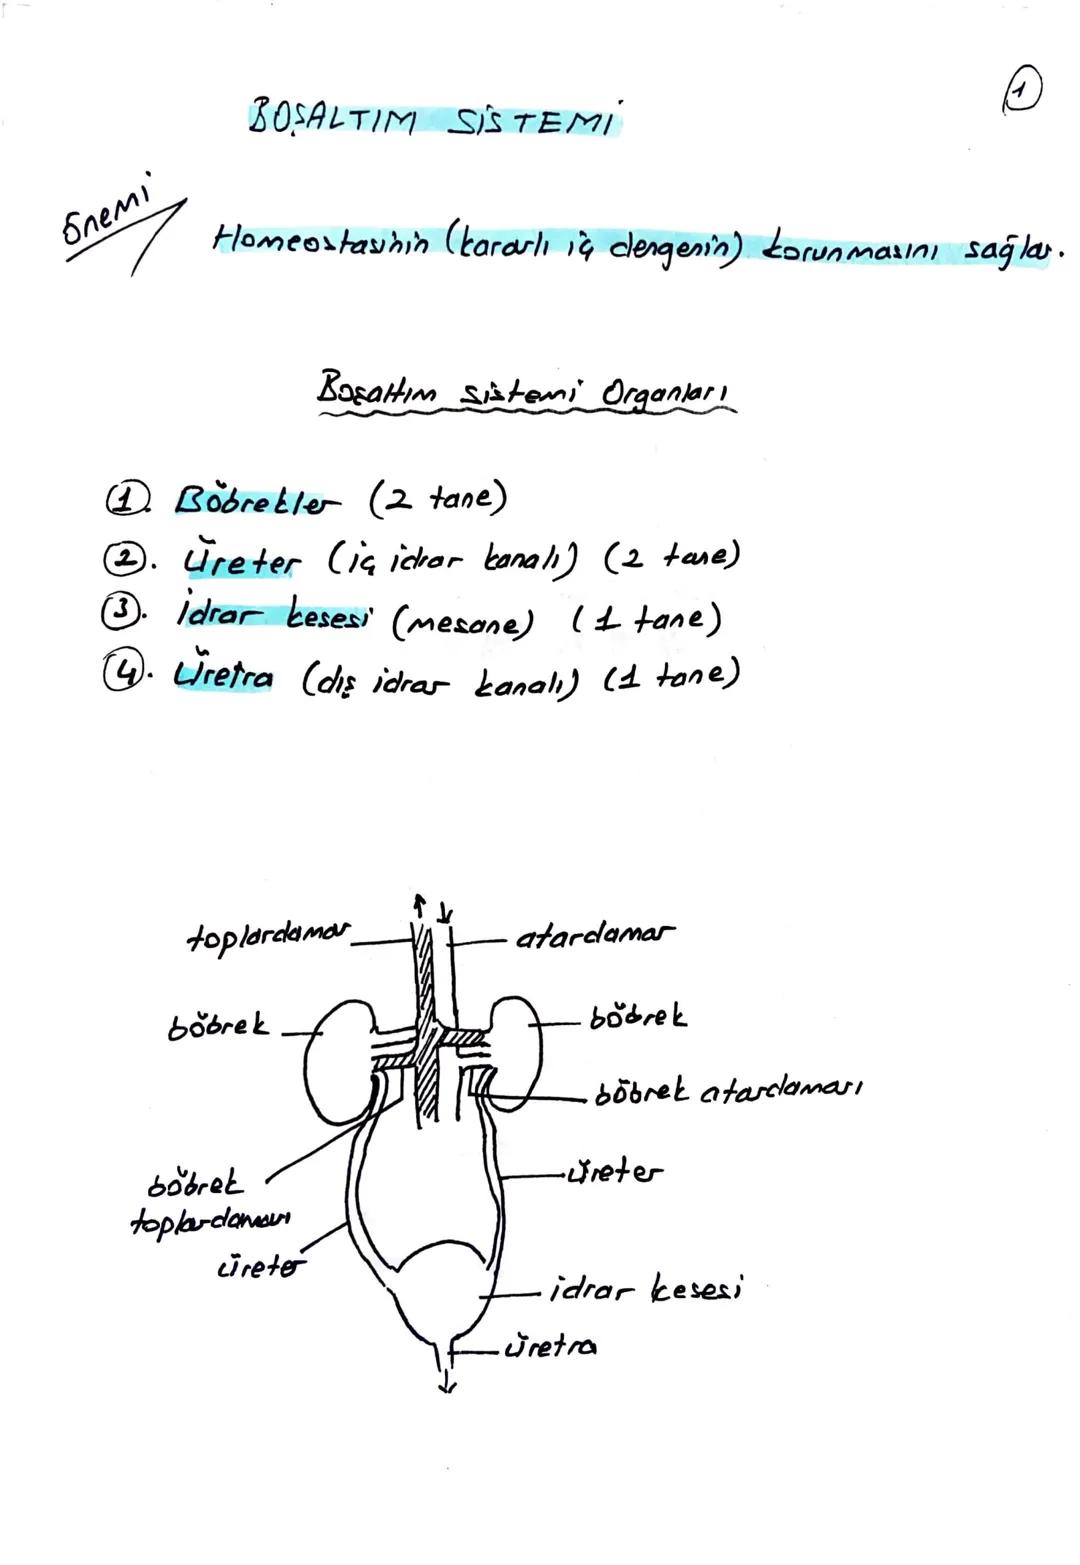 1
BOŞALTIM SİSTEMİ
Önemi
Homeostasinin (kararlı iç dengenin) korunmasını sağlar.
Boşaltım sistemi Organları
1. Böbrekler (2 tane)
2. Üreter (iç idrar kanalı) (2 tane)
3. İdrar kesesi (mesane) (1 tane)
4. Üretra (dış idrar kanalı) (1 tane)
toplardamar
atardamar
böbrek
böbrek
böbrek atardamarı
üreter
böbrek
toplardamarı
üreter
idrar kesesi
üretra